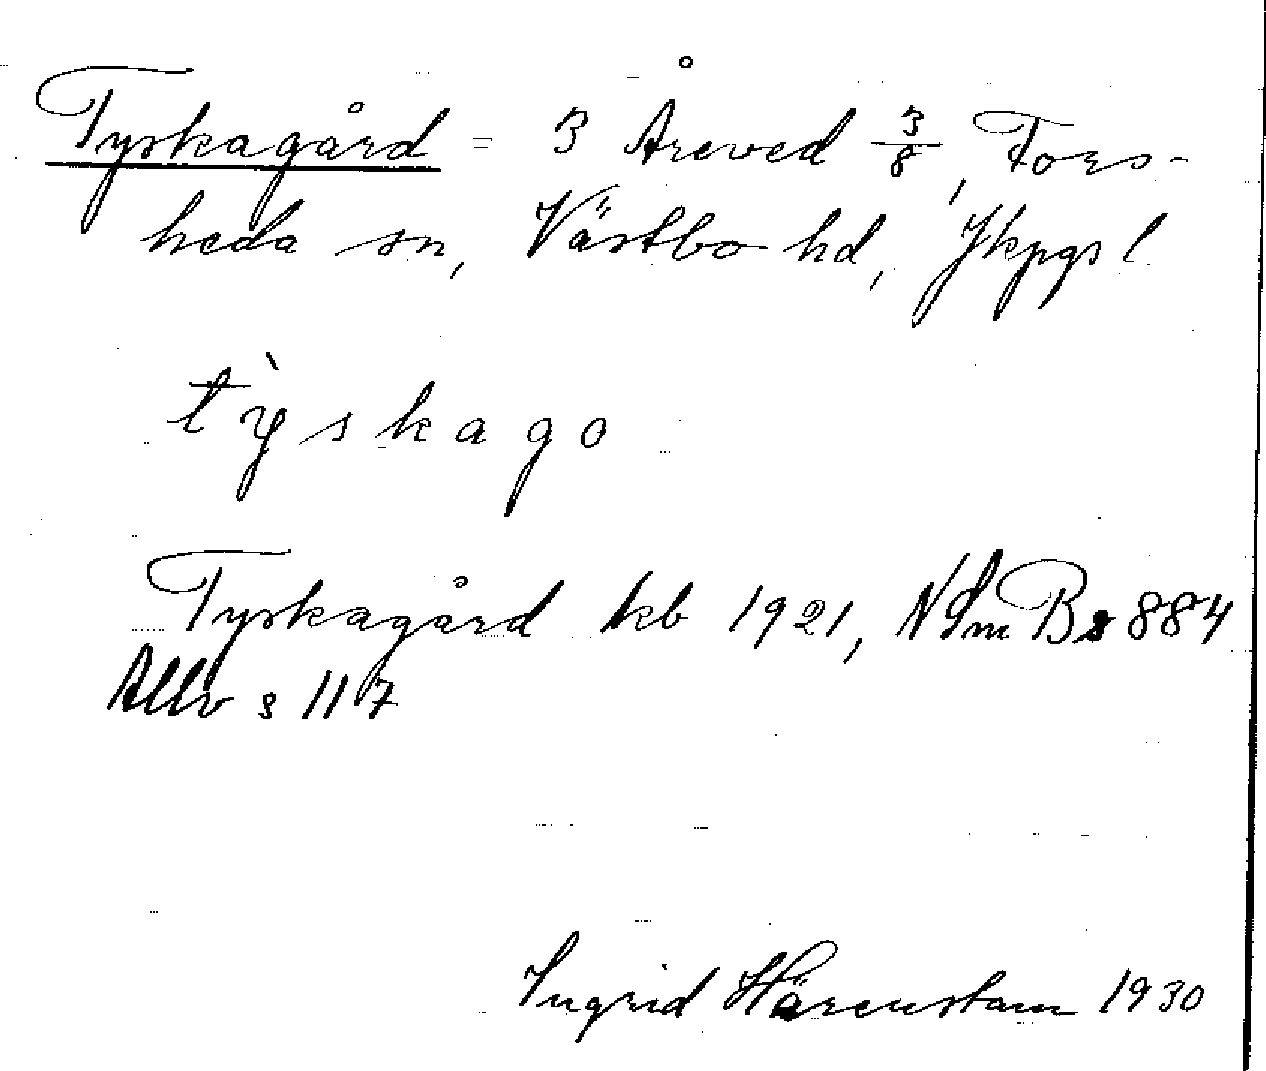 Tyskagård = 3 Åreved 3/8, Fors-
heda sn, Västbo hd, Jkpgs l
tỳskago
Tyskagård kb 1921, NSmB s 884
Allv s 117
Ingrid Härenstam 1930